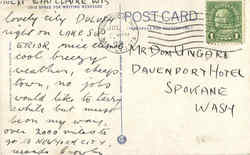 THIS SPACE FOR WRITING MESSAGES
POST CARD
lovely city DULUTH
right on LAKE SUP
ERIOR, nice clean
cool breezy
weather, cheap
town, no jobs
would like to tarry
while but must
be on my way.
over 2000 miles to
go to NEW YORK CITY,
MR DON UNGARI
DAVENPORT HOTEL
SPOKANE
WASH